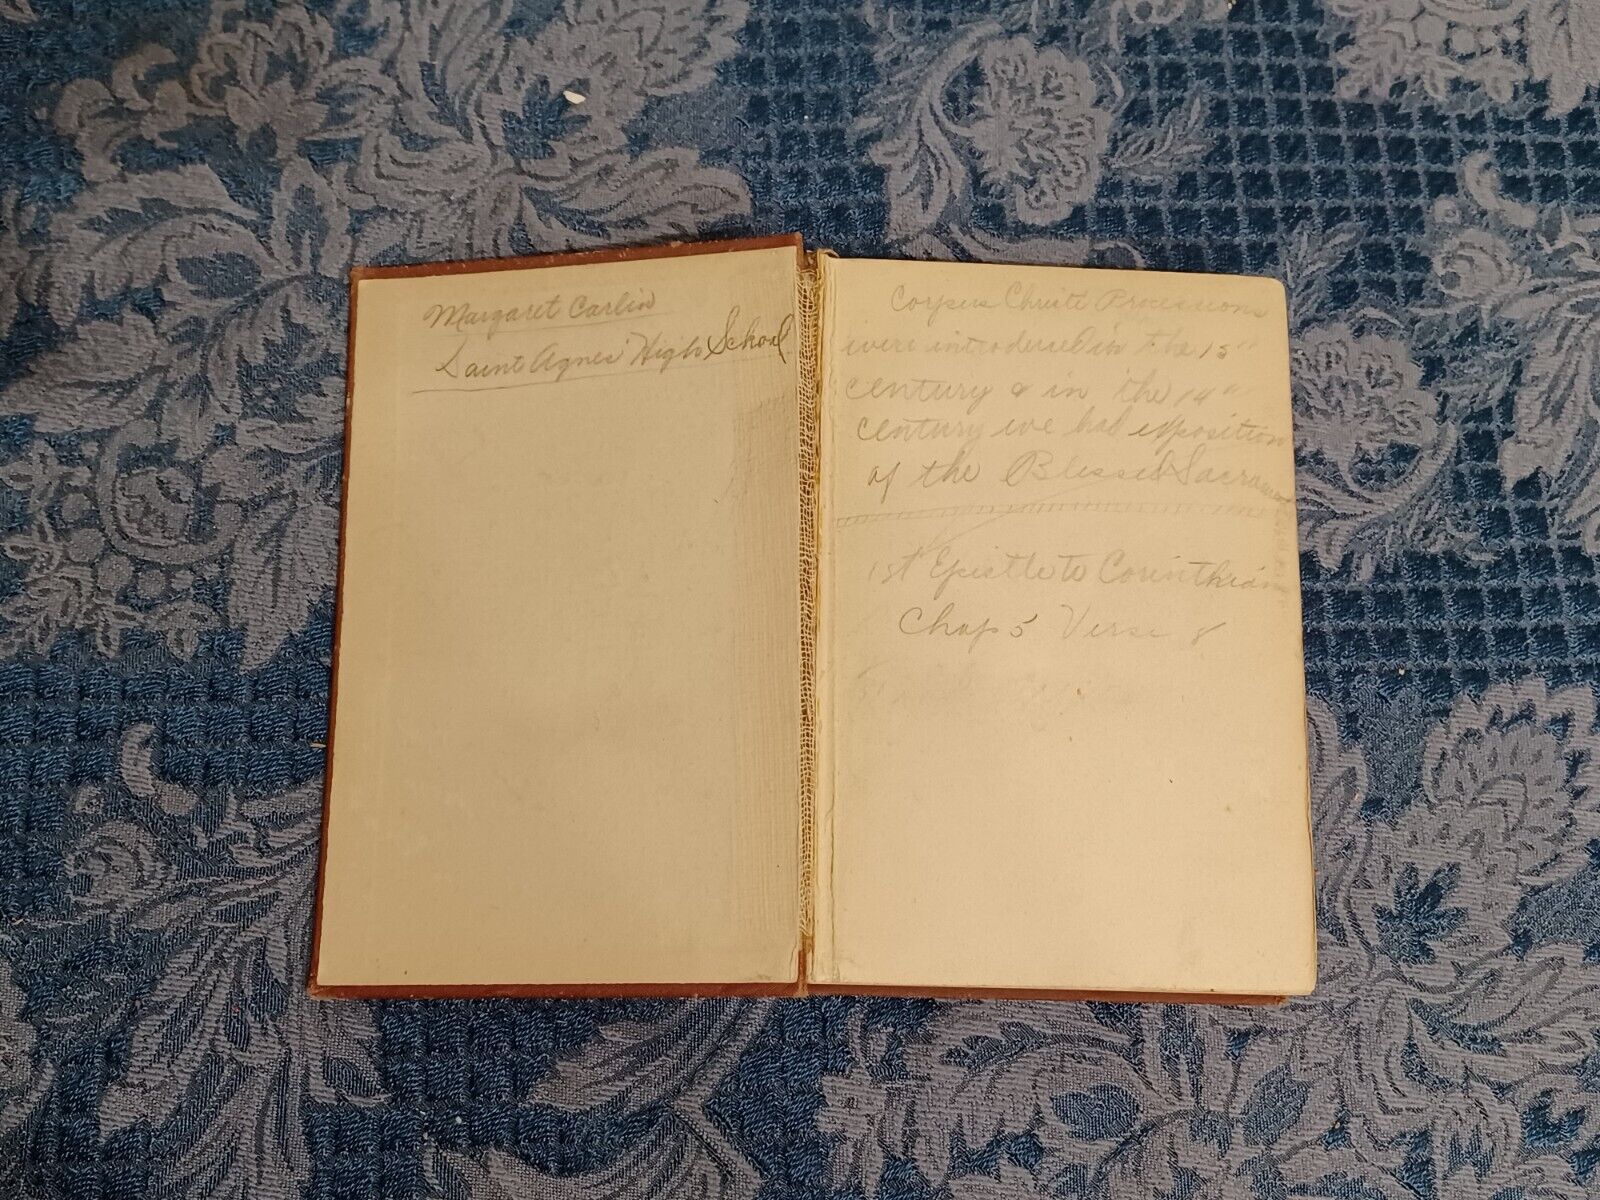 Margaret Carlin
Saint Agnes' High School
Corpus Christi Processions
were introduced in the 15"
century & in the 14"
century we had exposition
of the Blessed Sacrament
1st Epistle to Corinthians
Chap 5 Verse 8